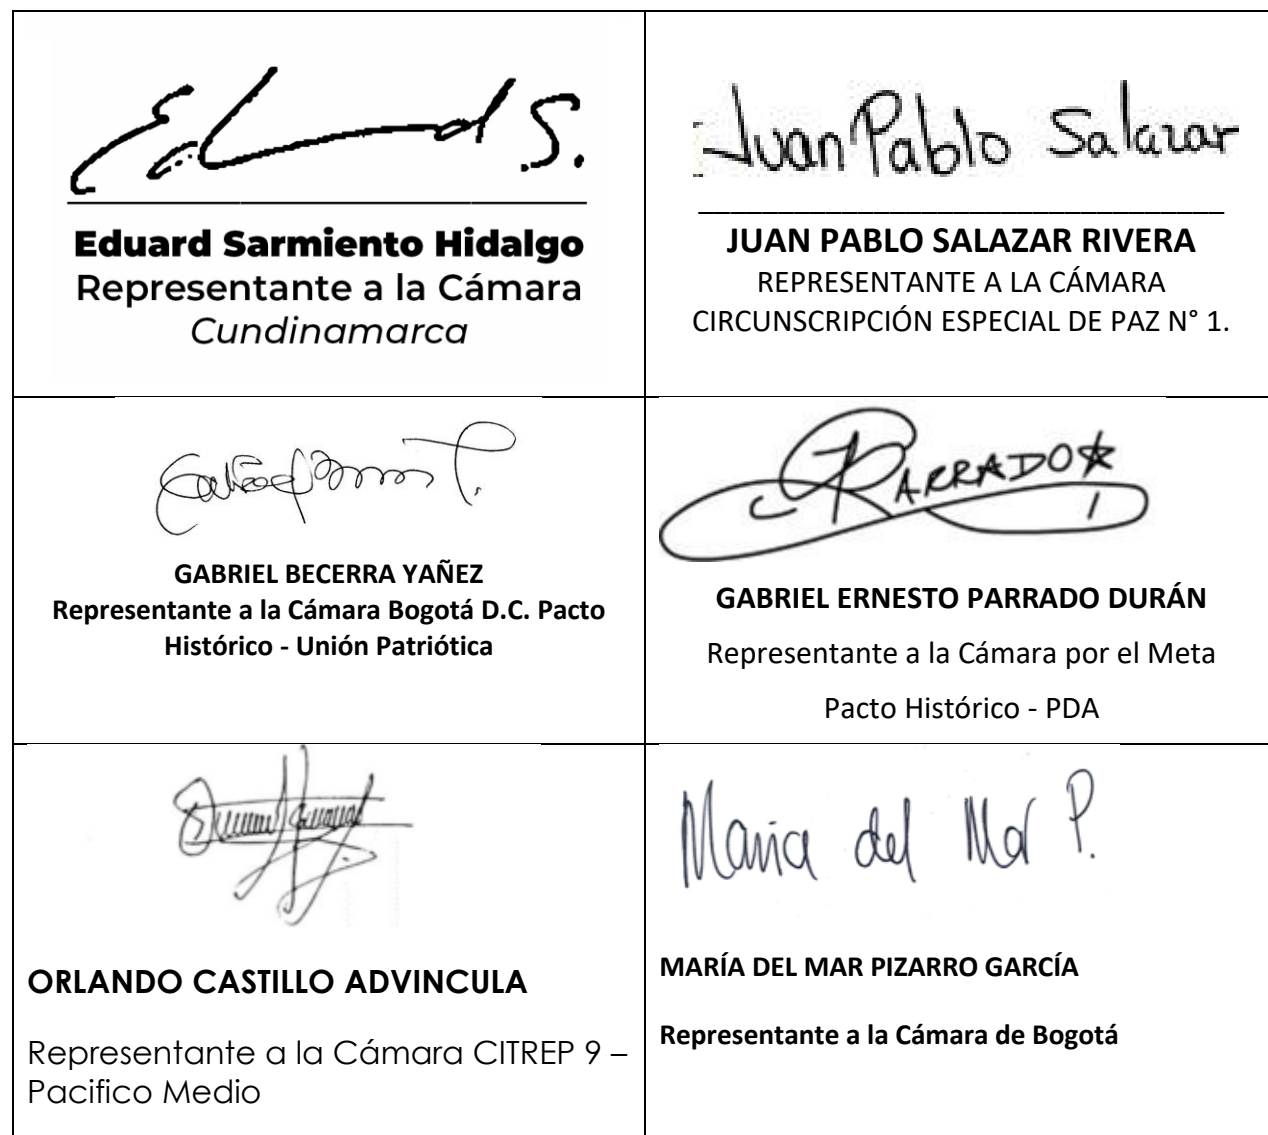 Eduard S.
Eduard Sarmiento Hidalgo
Representante a la Cámara
Cundinamarca
Juan Pablo Salazar
JUAN PABLO SALAZAR RIVERA
REPRESENTANTE A LA CÁMARA
CIRCUNSCRIPCIÓN ESPECIAL DE PAZ N° 1.
GABRIEL BECERRA YAÑEZ
Representante a la Cámara Bogotá D.C. Pacto
Histórico - Unión Patriótica
PARRADO
GABRIEL ERNESTO PARRADO DURÁN
Representante a la Cámara por el Meta
Pacto Histórico - PDA
ORLANDO CASTILLO ADVINCULA
Representante a la Cámara CITREP 9 –
Pacifico Medio
Maria del Mar P.
MARÍA DEL MAR PIZARRO GARCÍA
Representante a la Cámara de Bogotá